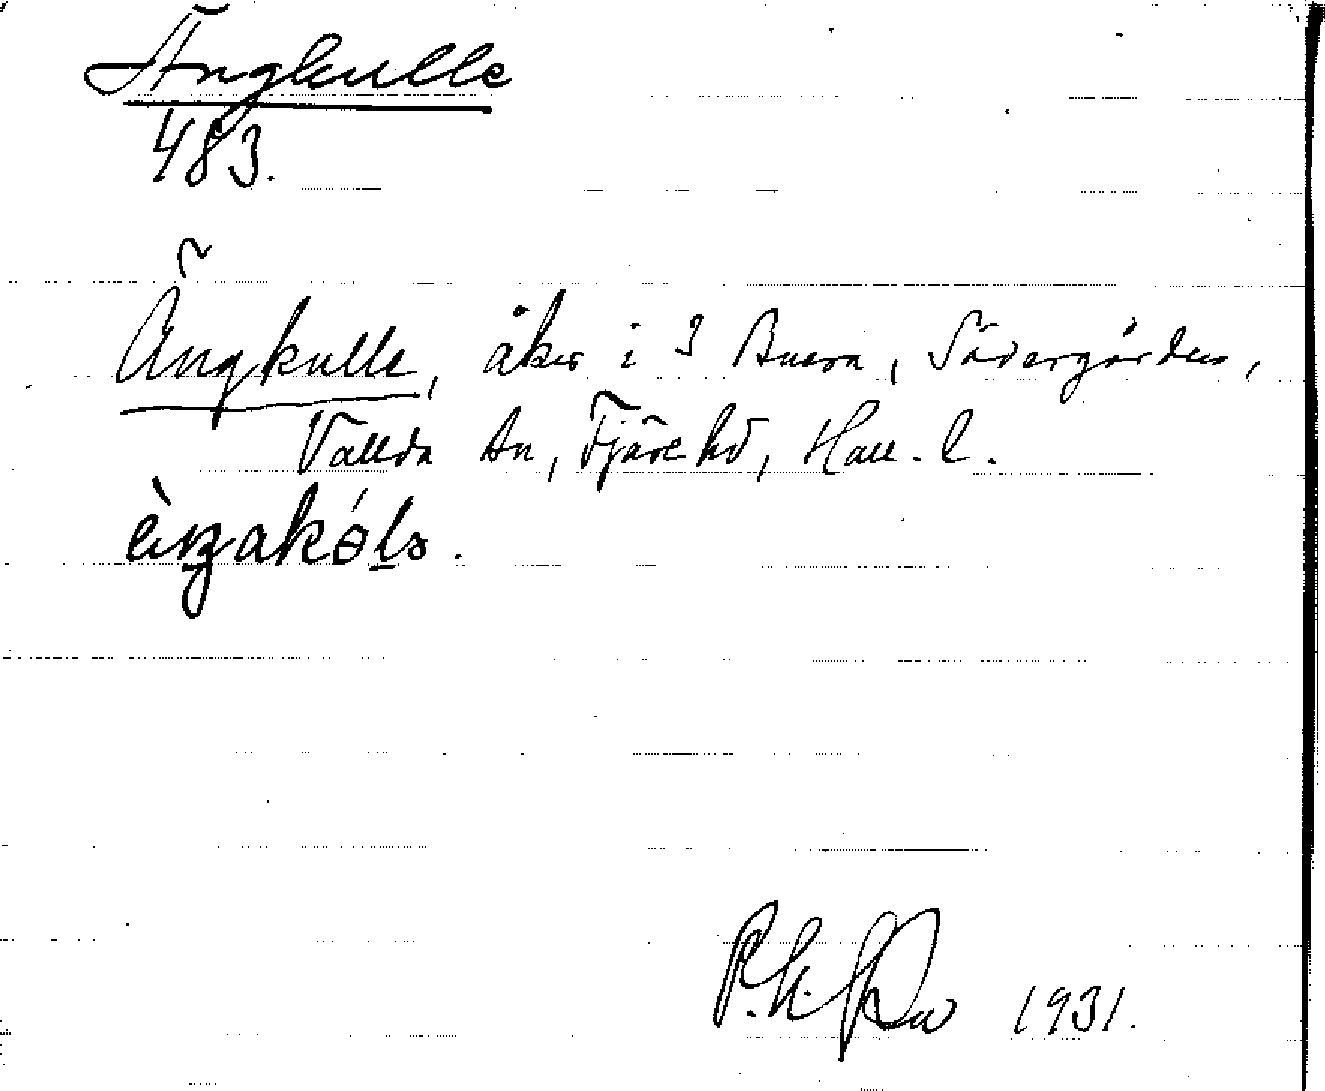 Ängkulle
483.
Ängkulle, åker i 3 Buera, Södergården,
Vallda sn, Fjäre hd, Hall. l.
1931.